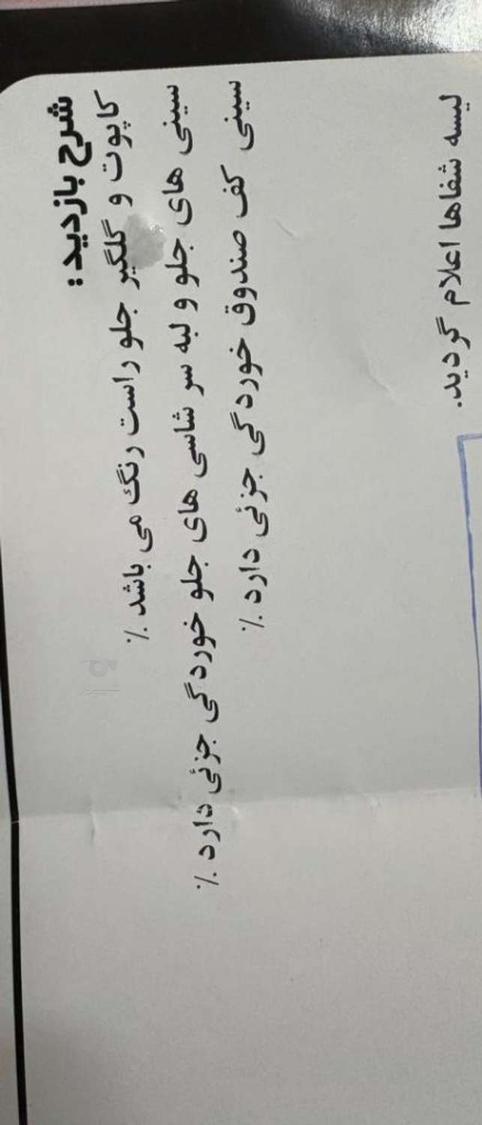 شرح بازدید :
کاپوت و گلگیر جلو راست رنگ می باشد ٪
سینی های جلو و لبه سر شاسی های جلو خوردگی جزئی دارد ٪
سینی کف صندوق خوردگی جزئی دارد ٪
لیسه شفاها اعلام گردید.